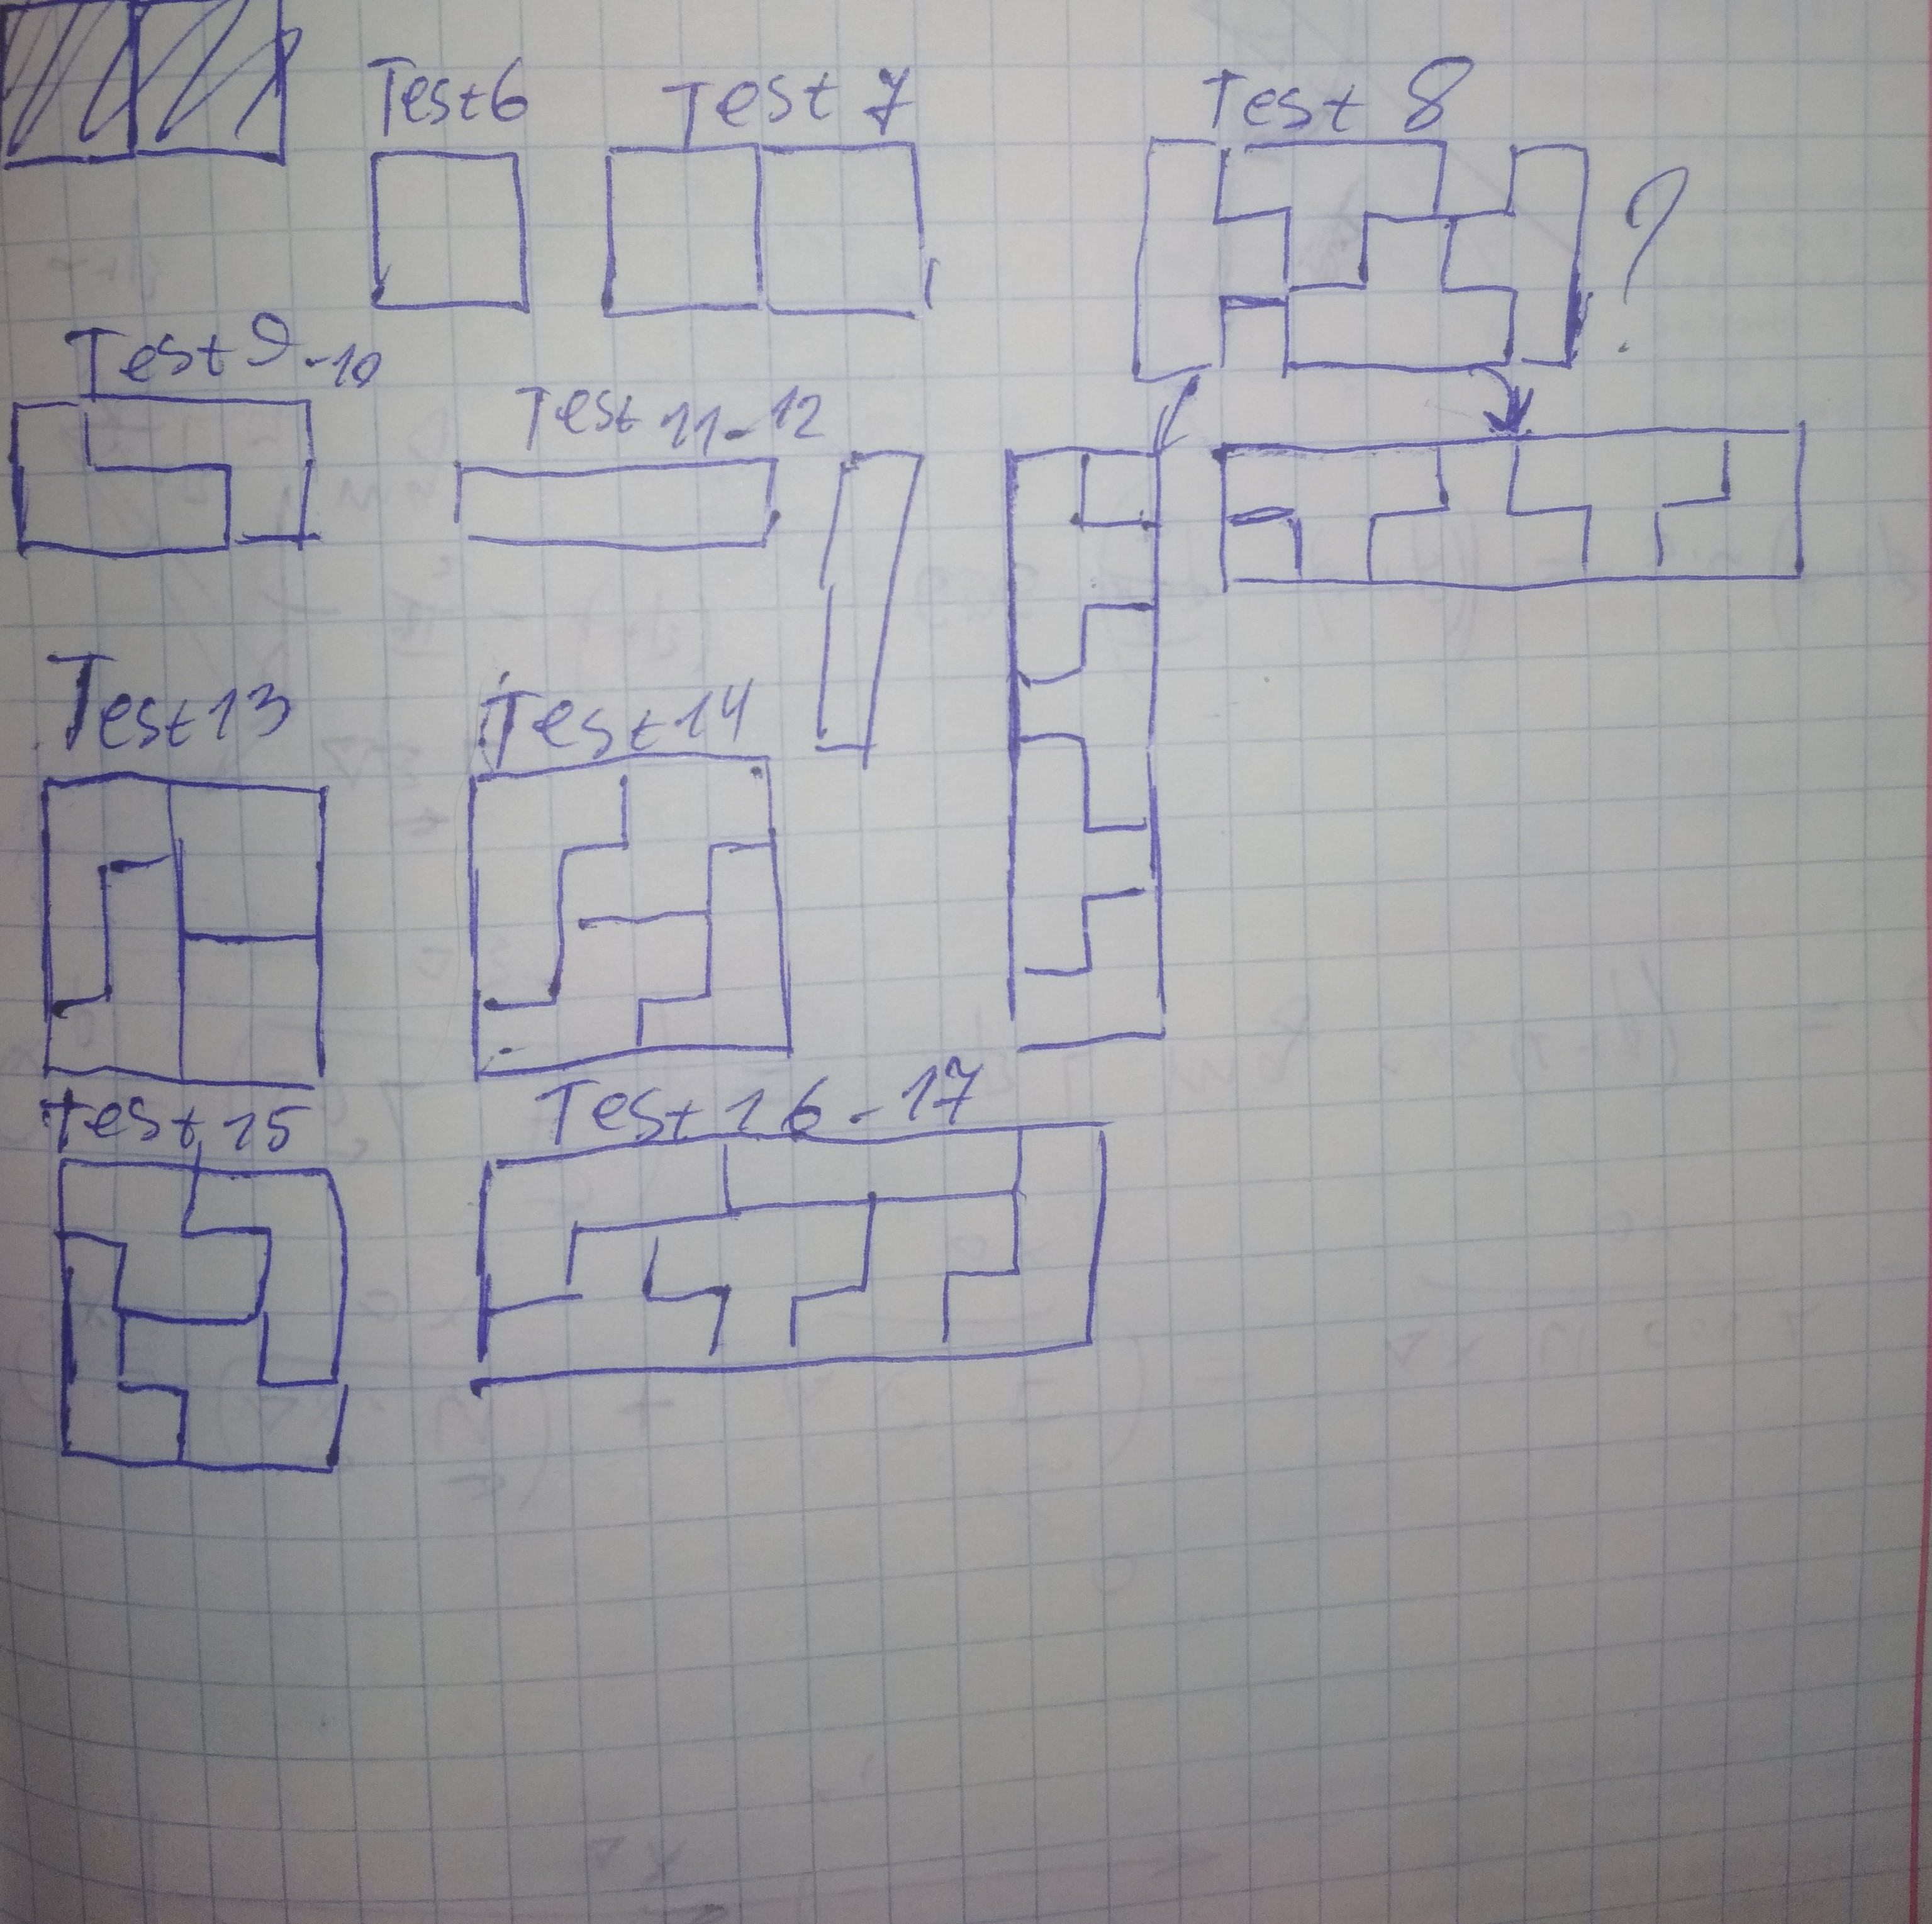 Test 6
Test 7
Test 8
?
Test 9-10
Test 11-12
Test 13
Test 14
Test 15
Test 16-17